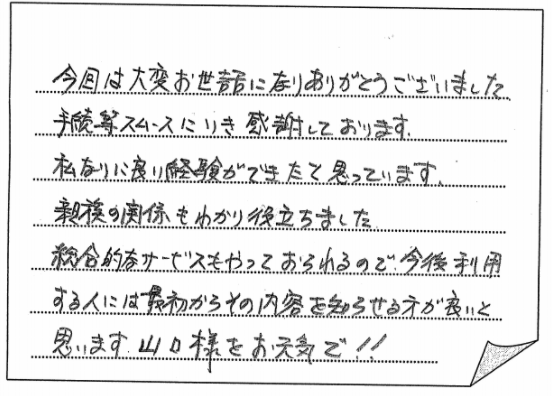 今回は大変お世話になりありがとうございました
手続等スムースにいき感謝しております.
私なりに良い経験ができたと思っています.
親族の関係もわかり役立ちました
総合的なサービスもやっておられるので.今後利用
する人には最初からその内容を知らせる方が良いと
思います.山口様をお元気で!!